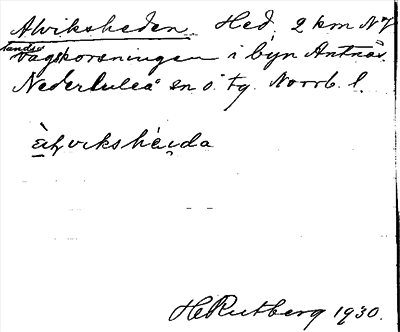 Alviksheden Hed, 2 km NV
landsvägskorsningen i byn Antnäs.
Nederluleå sn o. tg. Norrb. l.
HRutberg 1930.